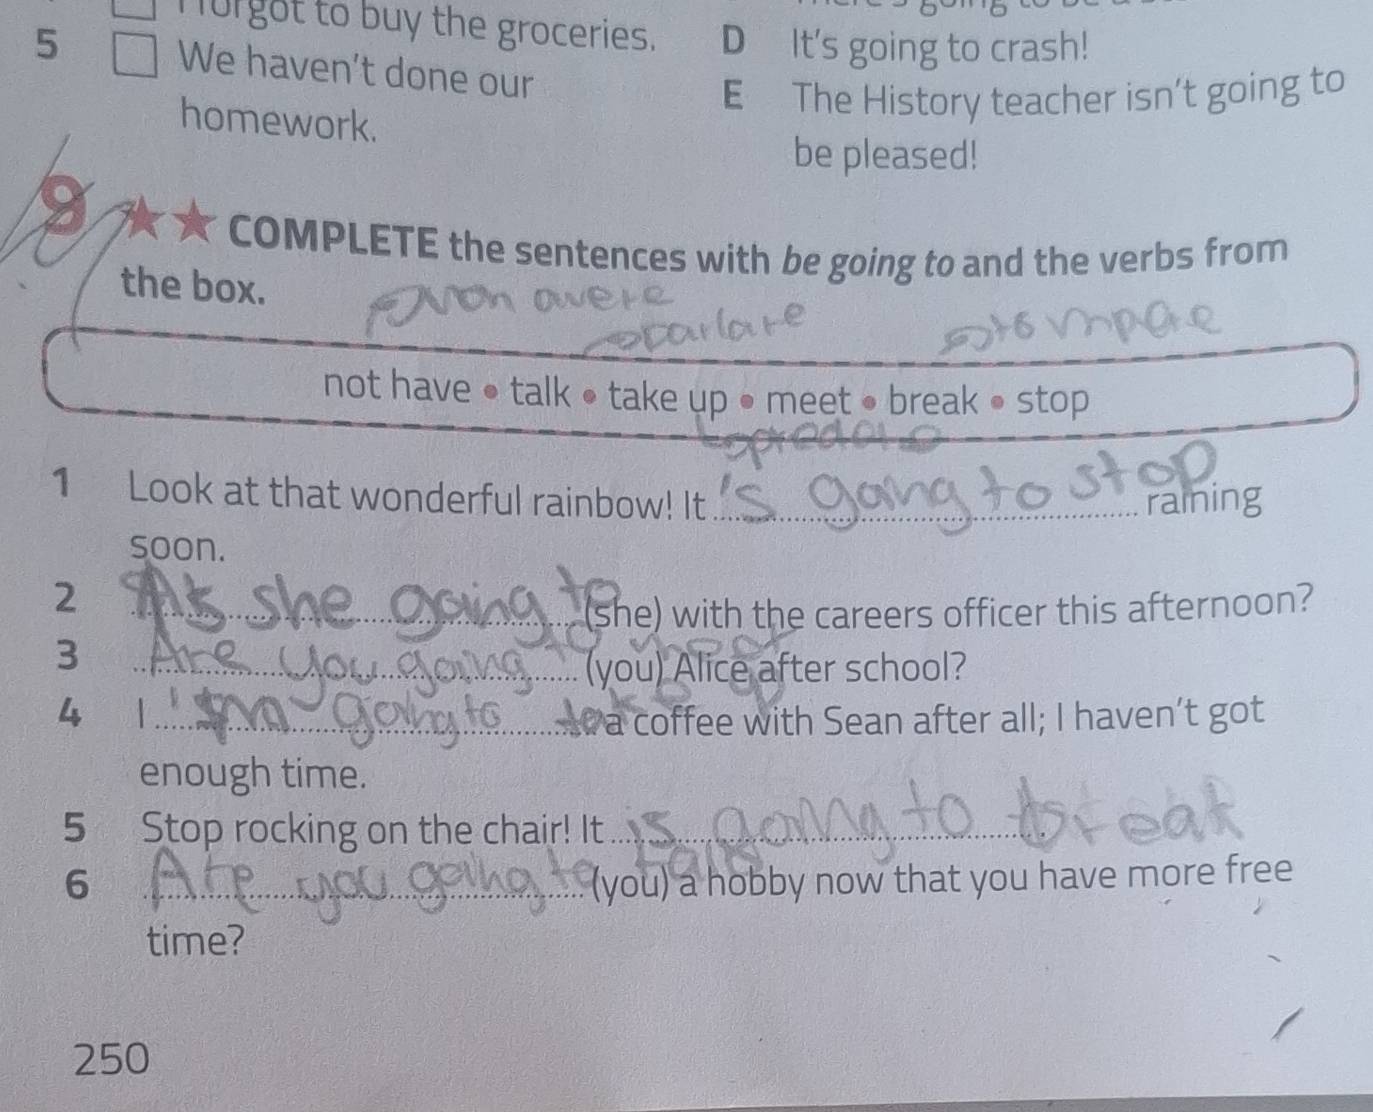 forgot to buy the groceries.
D It's going to crash!
5 We haven't done our
homework.
E The History teacher isn't going to
be pleased!
9 COMPLETE the sentences with be going to and the verbs from
the box.
non avere
parlare
not have • talk • take up • meet • break • stop
1 Look at that wonderful rainbow! It 's going to stop raining
soon.
2 she going to (she) with the careers officer this afternoon?
3 Are you going to meet (you) Alice after school?
4 I 'm going to a coffee with Sean after all; I haven't got
enough time.
5 Stop rocking on the chair! It is going to break
6 Are you going to (you) a hobby now that you have more free
time?
250